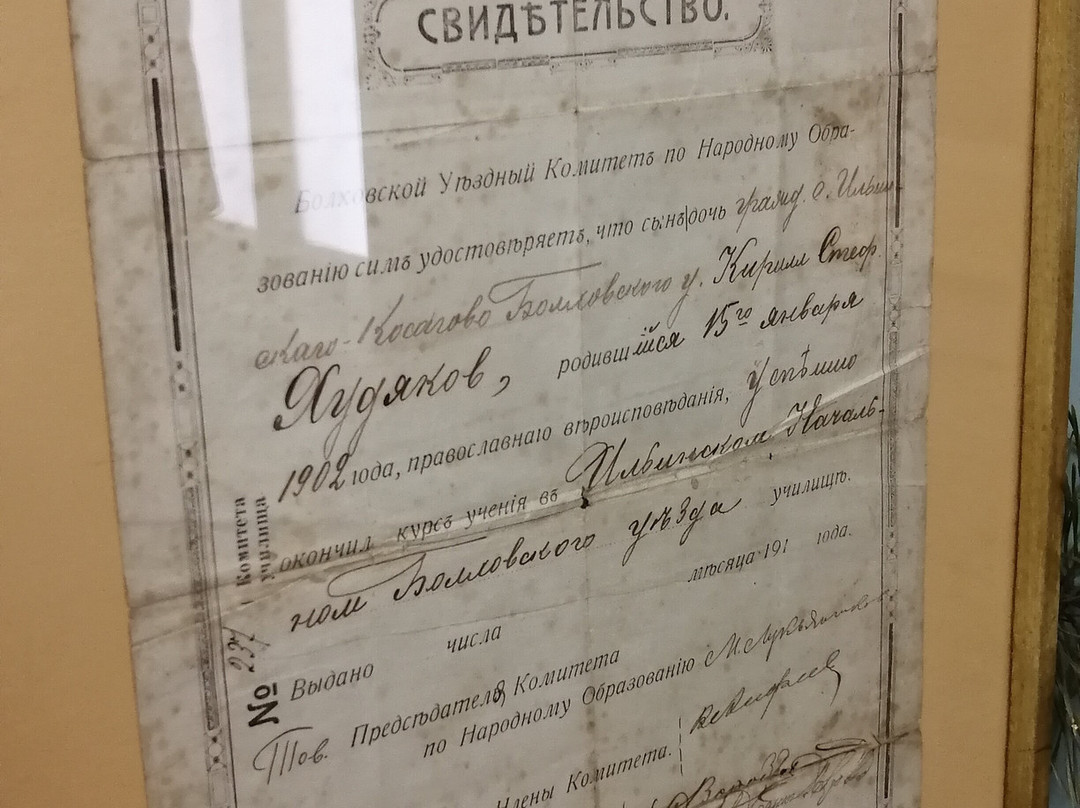 СВИДѢТЕЛЬСТВО.
Болховской Уѣздный Комитетъ по Народному Обра-
зованію симъ удостовѣряетъ, что сынъ|дочь гражд. с. Ильин-
скаго-Косагово Болховского у. Кирилл Стеф.
Худяков, родившійся 15го января
1902 года, православнаго вѣроисповѣданія, успѣшно
окончил курсъ ученія въ Ильинском Началь-
ном Болховского уѣзда училищѣ.
Выдано числа мѣсяца 191 года.
№ 237 Комитета
училища
Тов. Предсѣдателя Комитета
по Народному Образованію М. Лукьянов
Члены Комитета.